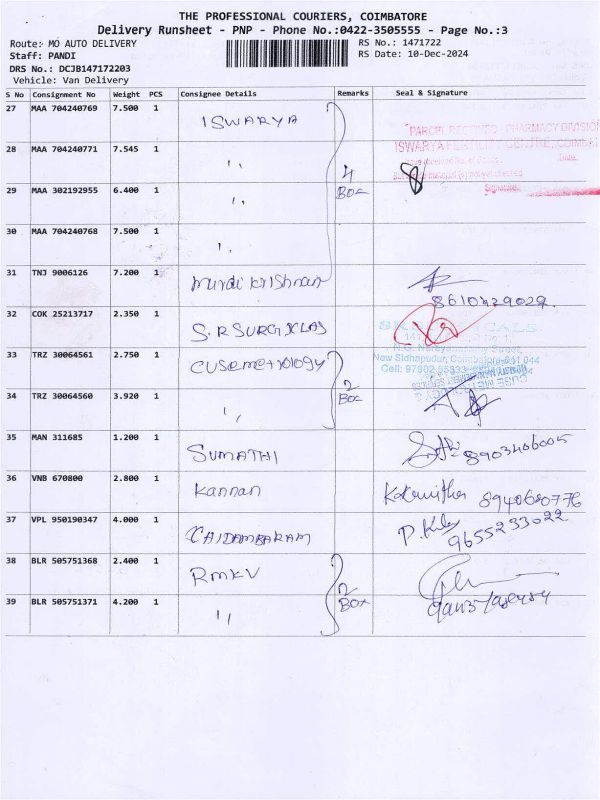 THE PROFESSIONAL COURIERS, COIMBATORE
Delivery Runsheet - PNP - Phone No.:0422-3505555 - Page No.:3
Route: MO AUTO DELIVERY
RS No.: 1471722
Staff: PANDI
RS Date: 10-Dec-2024
DRS No.: DCJB147172203
Vehicle: Van Delivery
S No Consignment No Weight PCS Consignee Details Remarks Seal & Signature
27 MAA 704240769 7.500 1 ISWARYA
PARCEL RECEIVED - PHARMACY DIVISION
ISWARYA FERTILITY CENTRE, COIMBAT
28 MAA 704240771 7.545 1 "
Date.
4
Box
29 MAA 302192955 6.400 1 "
Signature
30 MAA 704240768 7.500 1 "
31 TNJ 9006126 7.200 1 murali krishnan
8610429029
32 COK 25213717 2.350 1 S.R SURGICLAS
New Sidhapudur, Coimbatore-641 044
33 TRZ 30064561 2.750 1 cusemetrology
2
Box
34 TRZ 30064560 3.920 1 "
35 MAN 311685 1.200 1 SUMATHI
8903406005
36 VNB 670800 2.800 1 Kannan
8940680776
37 VPL 950190347 4.000 1 CHIDAMBARAM
9655233022
38 BLR 505751368 2.400 1 RMKV
2
Box
39 BLR 505751371 4.200 1 "